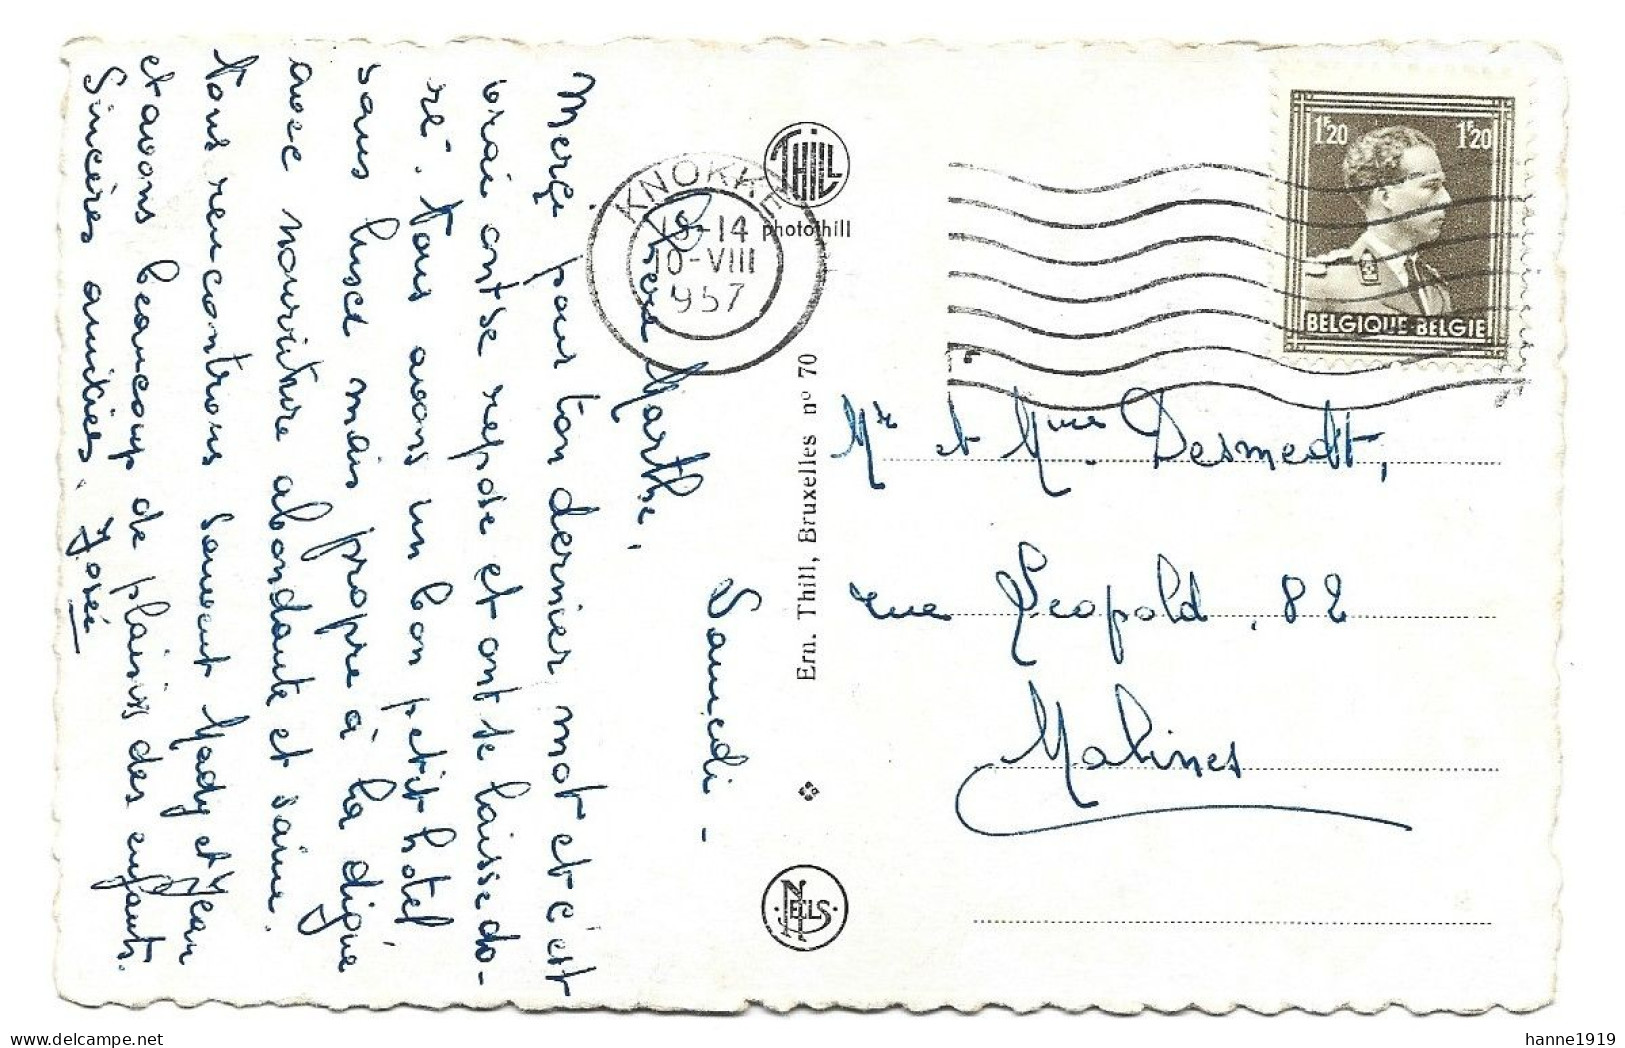 Samedi -
Chère Marthe,
Merçi pour ton dernier mot et c'est
vrai on se repose et on se laisse do-
ré". Nous avons un bon petit hôtel
sans luxe mais propre à la digue
avec nourriture abondante et saine.
Nous rencontrons souvent Mady et Jean
et avons beaucoup de plaisirs des enfants.
Sincères amitiés. Josée
THILL
photothill
KNOKKE
13-14
10-VIII
957
Ern. Thill, Bruxelles nº 70
NELS
1F20 1F20
BELGIQUE-BELGIE
Mr et Mme Desmedt,
rue Léopold, 82
Malines
hanne1919